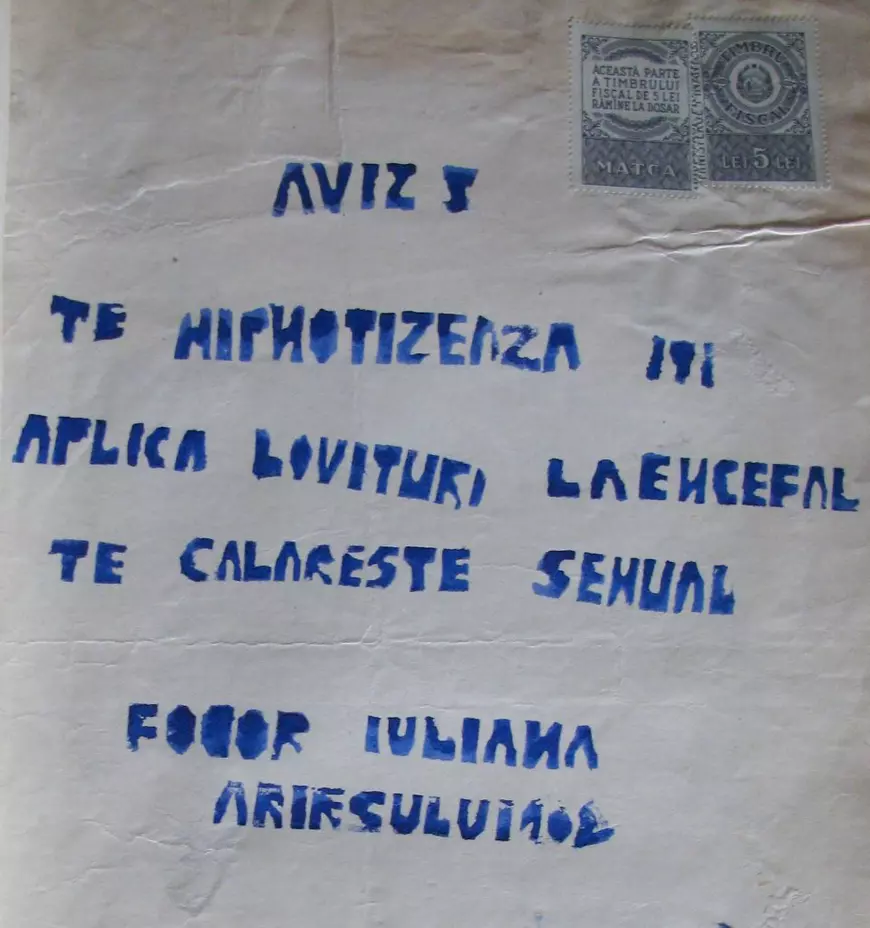 ACEASTĂ PARTE
A TIMBRULUI
FISCAL DE 5 LEI
RĂMÎNE LA DOSAR
MATCA
TIMBRU
FISCAL
LEI 5 LEI
AVIZ
TE HIPNOTIZEAZA ITI
APLICA LOVITURI LA ENCEFAL
TE CALARESTE SEXUAL
FODOR IULIANA
ARIESULUI 102